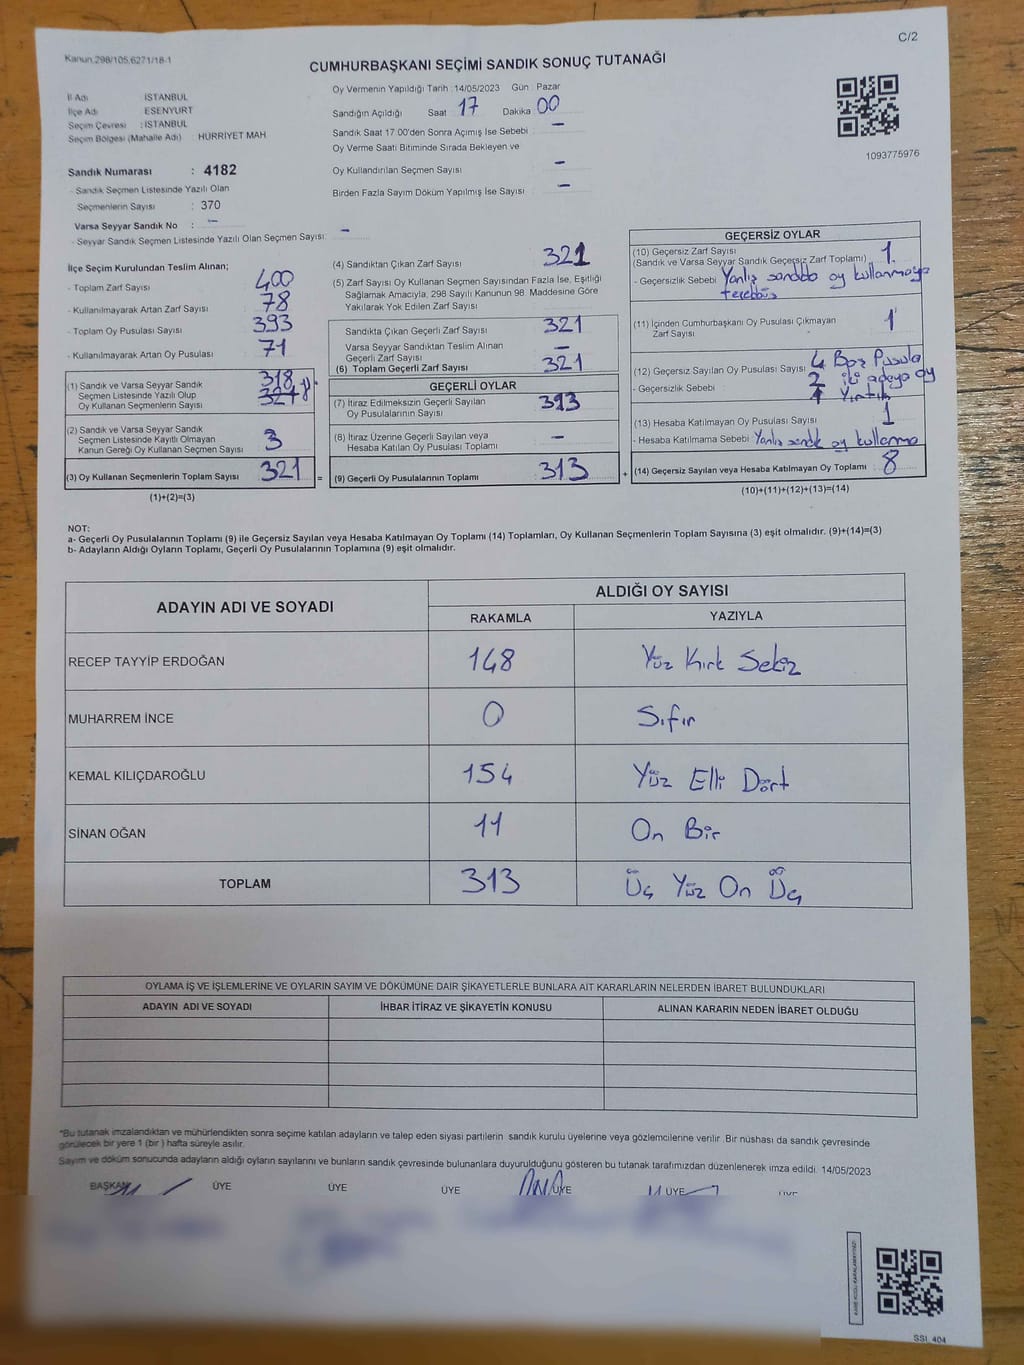 C/2
Kanun.298/105,6271/18-1
CUMHURBAŞKANI SEÇİMİ SANDIK SONUÇ TUTANAĞI
İl Adı İSTANBUL
İlçe Adı ESENYURT
Seçim Çevresi : İSTANBUL
Seçim Bölgesi (Mahalle Adı) : HÜRRİYET MAH
Sandık Numarası : 4182
- Sandık Seçmen Listesinde Yazılı Olan
Seçmenlerin Sayısı : 370
Varsa Seyyar Sandık No : -
- Seyyar Sandık Seçmen Listesinde Yazılı Olan Seçmen Sayısı: -
Oy Vermenin Yapıldığı Tarih :14/05/2023 Gün : Pazar
Sandığın Açıldığı Saat 17 Dakika 00
Sandık Saat 17:00'den Sonra Açılmış İse Sebebi : -
Oy Verme Saati Bitiminde Sırada Bekleyen ve
Oy Kullandırılan Seçmen Sayısı : -
Birden Fazla Sayım Döküm Yapılmış İse Sayısı : -
1093775976
İlçe Seçim Kurulundan Teslim Alınan;
- Toplam Zarf Sayısı : 400
- Kullanılmayarak Artan Zarf Sayısı : 78
- Toplam Oy Pusulası Sayısı : 393
- Kullanılmayarak Artan Oy Pusulası : 71
(1) Sandık ve Varsa Seyyar Sandık
Seçmen Listesinde Yazılı Olup
Oy Kullanan Seçmenlerin Sayısı 318
(2) Sandık ve Varsa Seyyar Sandık
Seçmen Listesinde Kayıtlı Olmayan
Kanun Gereği Oy Kullanan Seçmen Sayısı 3
(3) Oy Kullanan Seçmenlerin Toplam Sayısı 321
(1)+(2)=(3)
(4) Sandıktan Çıkan Zarf Sayısı 321
(5) Zarf Sayısı Oy Kullanan Seçmen Sayısından Fazla İse, Eşitliği
Sağlamak Amacıyla, 298 Sayılı Kanunun 98. Maddesine Göre
Yakılarak Yok Edilen Zarf Sayısı
Sandıkta Çıkan Geçerli Zarf Sayısı 321
Varsa Seyyar Sandıktan Teslim Alınan
Geçerli Zarf Sayısı -
(6) Toplam Geçerli Zarf Sayısı 321
GEÇERLİ OYLAR
(7) İtiraz Edilmeksizin Geçerli Sayılan
Oy Pusulalarının Sayısı 313
(8) İtiraz Üzerine Geçerli Sayılan veya
Hesaba Katılan Oy Pusulası Toplamı -
= (9) Geçerli Oy Pusulalarının Toplamı 313 +
GEÇERSİZ OYLAR
(10) Geçersiz Zarf Sayısı
(Sandık ve Varsa Seyyar Sandık Geçersiz Zarf Toplamı) : 1
- Geçersizlik Sebebi : Yanlış sandıkta oy kullanmaya
teşebbüs
(11) İçinden Cumhurbaşkanı Oy Pusulası Çıkmayan
Zarf Sayısı 1
(12) Geçersiz Sayılan Oy Pusulası Sayısı : 4 Boş Pusula
- Geçersizlik Sebebi : 2 iki adaya oy
Yırtık
(13) Hesaba Katılmayan Oy Pusulası Sayısı : 1
- Hesaba Katılmama Sebebi : Yanlış sandık oy kullanma
(14) Geçersiz Sayılan veya Hesaba Katılmayan Oy Toplamı 8
(10)+(11)+(12)+(13)=(14)
NOT:
a- Geçerli Oy Pusulalarının Toplamı (9) ile Geçersiz Sayılan veya Hesaba Katılmayan Oy Toplamı (14) Toplamları, Oy Kullanan Seçmenlerin Toplam Sayısına (3) eşit olmalıdır. (9)+(14)=(3)
b- Adayların Aldığı Oyların Toplamı, Geçerli Oy Pusulalarının Toplamına (9) eşit olmalıdır.
ADAYIN ADI VE SOYADI ALDIĞI OY SAYISI
RAKAMLA YAZIYLA
RECEP TAYYİP ERDOĞAN 148 Yüz Kırk Sekiz
MUHARREM İNCE 0 Sıfır
KEMAL KILIÇDAROĞLU 154 Yüz Elli Dört
SİNAN OĞAN 11 On Bir
TOPLAM 313 Üç Yüz On Üç
OYLAMA İŞ VE İŞLEMLERİNE VE OYLARIN SAYIM VE DÖKÜMÜNE DAİR ŞİKAYETLERLE BUNLARA AİT KARARLARIN NELERDEN İBARET BULUNDUKLARI
ADAYIN ADI VE SOYADI İHBAR İTİRAZ VE ŞİKAYETİN KONUSU ALINAN KARARIN NEDEN İBARET OLDUĞU
*Bu tutanak imzalandıktan ve mühürlendikten sonra seçime katılan adayların ve talep eden siyasi partilerin sandık kurulu üyelerine veya gözlemcilerine verilir. Bir nüshası da sandık çevresinde
görülecek bir yere 1 (bir) hafta süreyle asılır.
Sayım ve döküm sonucunda adayların aldığı oyların sayılarını ve bunların sandık çevresinde bulunanlara duyurulduğunu gösteren bu tutanak tarafımızdan düzenlenerek imza edildi. 14/05/2023
BAŞKAN ÜYE ÜYE ÜYE ÜYE ÜYE ÜYE
SSI_404